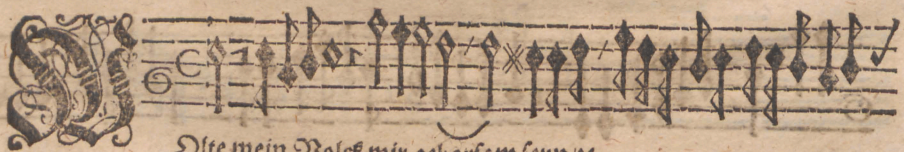 WOlte mein Volck mir gehorsam seyn